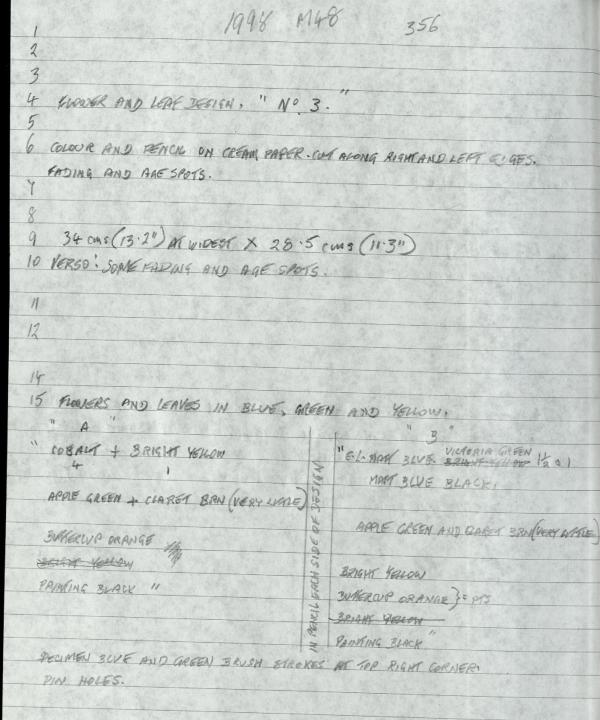 1998 M48 356
1
2
3
4 FLOWER AND LEAF DESIGN. "Nº 3."
5
6 COLOUR AND PENCIL ON CREAM PAPER. CUT ALONG RIGHT AND LEFT EDGES.
FADING AND AGE SPOTS.
7
8
9 34 cms (13.2") AT WIDEST X 28.5 cms (11.3")
10 VERSO: SOME FADING AND AGE SPOTS.
11
12
14
15 FLOWERS AND LEAVES IN BLUE, GREEN AND YELLOW.
" A "
" COBALT + BRIGHT YELLOW
4 1
APPLE GREEN + CLARET BRN (VERY LITTLE)
BUTTERCUP ORANGE
BRIGHT YELLOW
PAINTING BLACK "
IN PENCIL EACH SIDE OF DESIGN
" B "
"E.L. MATT BLUE VICTORIA GREEN BRIGHT YELLOW 1½ 1
MATT BLUE BLACK.
APPLE GREEN AND CLARET BRN (VERY LITTLE)
BRIGHT YELLOW
BUTTERCUP ORANGE } = PTS
BRIGHT YELLOW
PAINTING BLACK "
SPECIMEN BLUE AND GREEN BRUSH STROKES AT TOP RIGHT CORNER.
PIN HOLES.